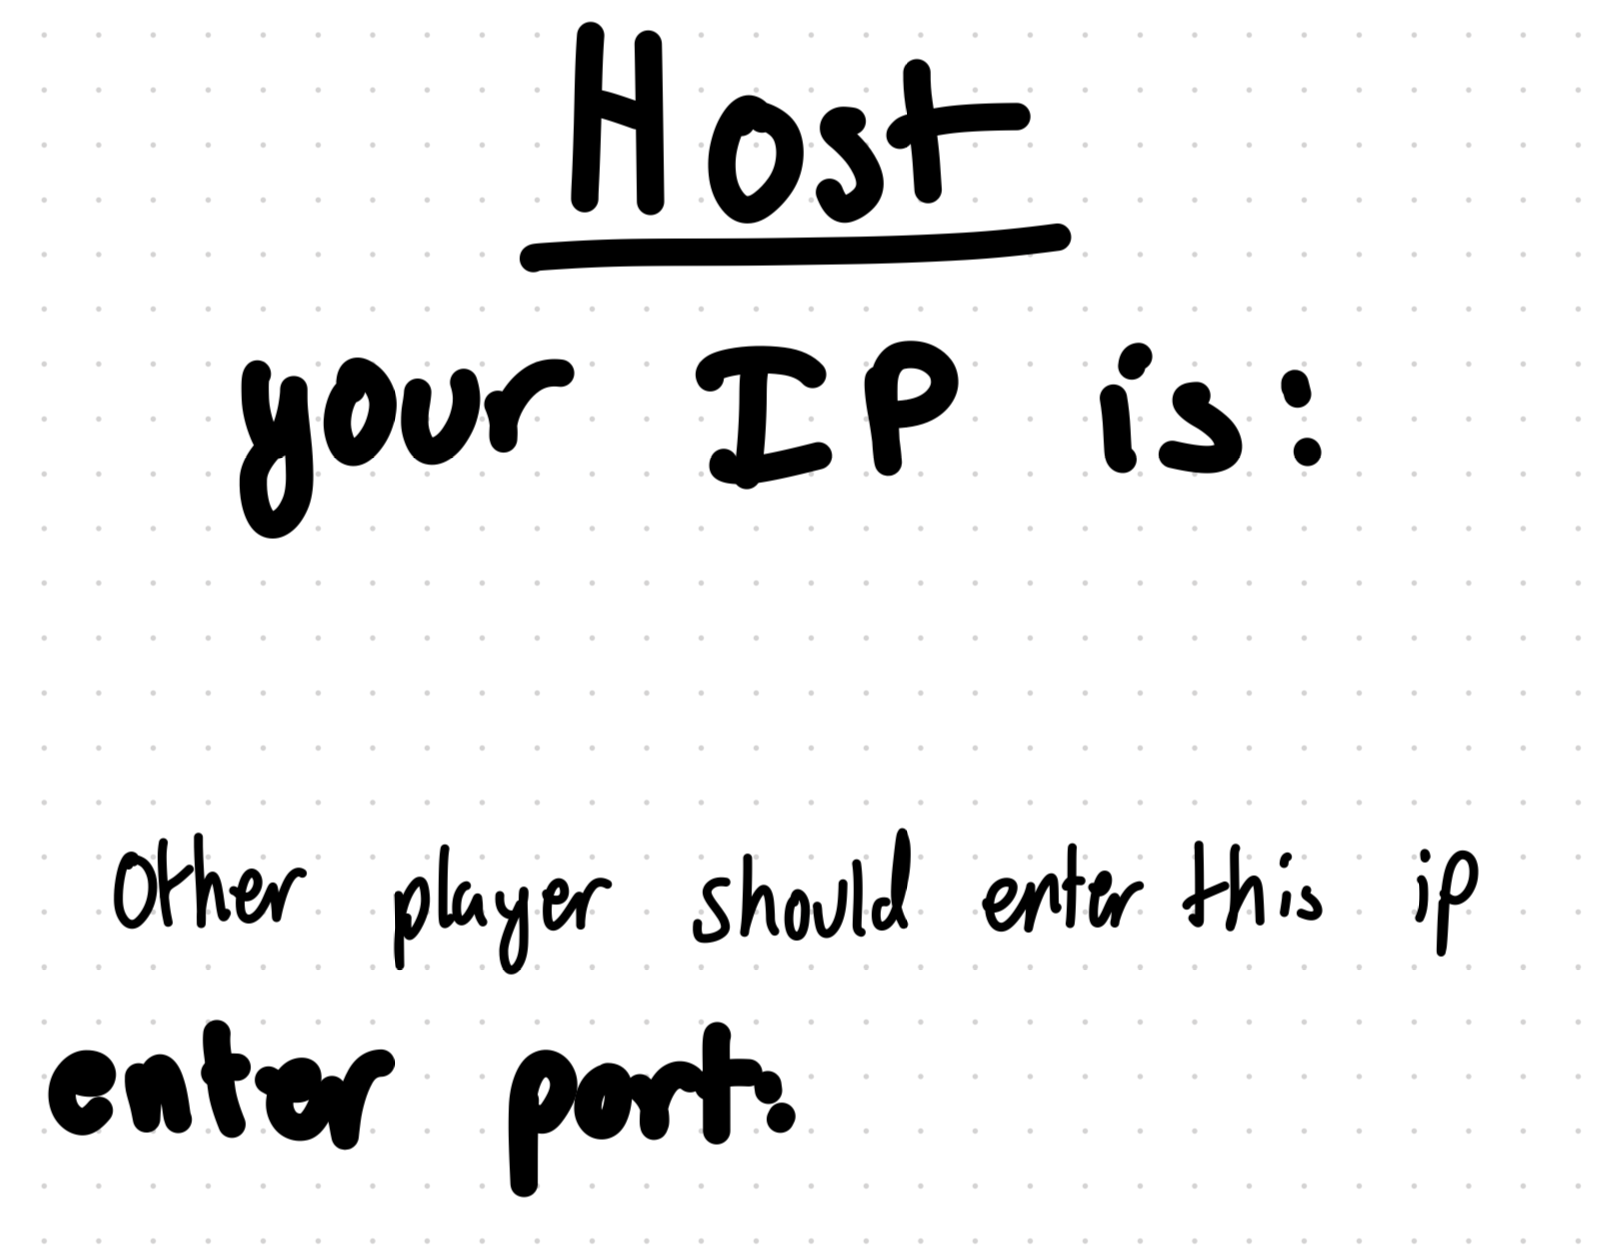 Host
your IP is:
Other player should enter this ip
enter port: